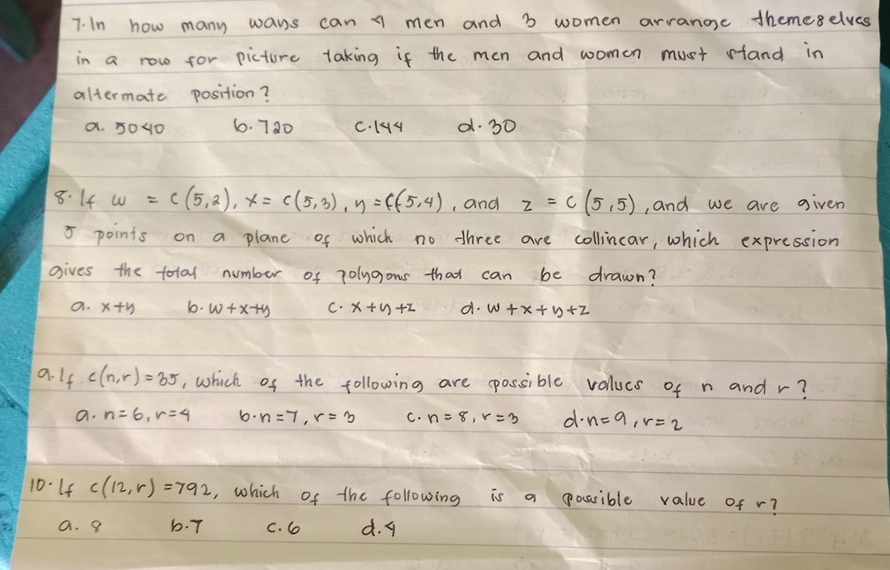 7. In how many ways can 4 men and 3 women arrange themeselves
in a row for picture taking if the men and women must stand in
altermate position?
a. 5040 b. 720 c. 144 d. 30
8. If w = C(5,2), x = C(5,3), y = C(5,4), and z = C(5,5), and we are given
5 points on a plane of which no three are collincar, which expression
gives the total number of polygons that can be drawn?
a. x+y b. w+x+y c. x+y+z d. w+x+y+z
9. If C(n,r) = 35, which of the following are possible values of n and r?
a. n=6, r=4 b. n=7, r=3 c. n=8, r=3 d. n=9, r=2
10. If C(12,r) = 792, which of the following is a possible value of r?
a. 8 b. 7 c. 6 d. 4